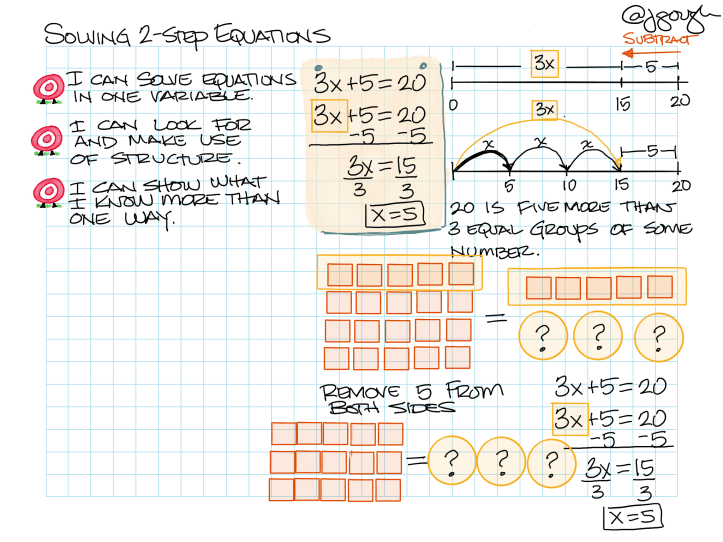 @jgough
SOLVING 2-STEP EQUATIONS
I CAN SOLVE EQUATIONS
IN ONE VARIABLE.
I CAN LOOK FOR
AND MAKE USE
OF STRUCTURE.
I CAN SHOW WHAT
I KNOW MORE THAN
ONE WAY.
3x+5=20
3x+5=20
-5 -5
3x=15
3 3
x=5
SUBTRACT
3x 5
0 15 20
3x
x x x 5
5 10 15 20
20 IS FIVE MORE THAN
3 EQUAL GROUPS OF SOME
NUMBER.
=
? ? ?
REMOVE 5 FROM
BOTH SIDES
= ? ? ?
3x+5=20
3x+5=20
-5 -5
3x=15
3 3
x=5